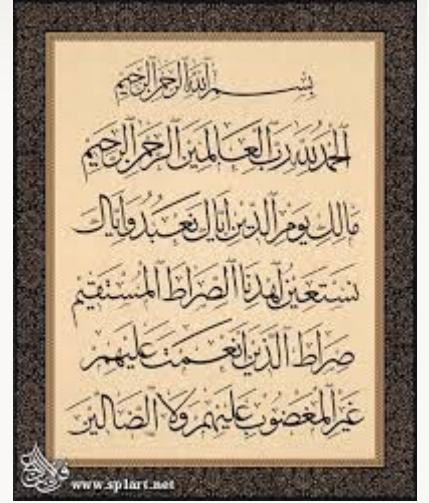 بسم الله الرحمن الرحيم
الحمد لله رب العالمين الرحمن الرحيم
مالك يوم الدين اياك نعبد واياك
نستعين اهدنا الصراط المستقيم
صراط الذين انعمت عليهم
غير المغضوب عليهم ولا الضالين
www.splart.net